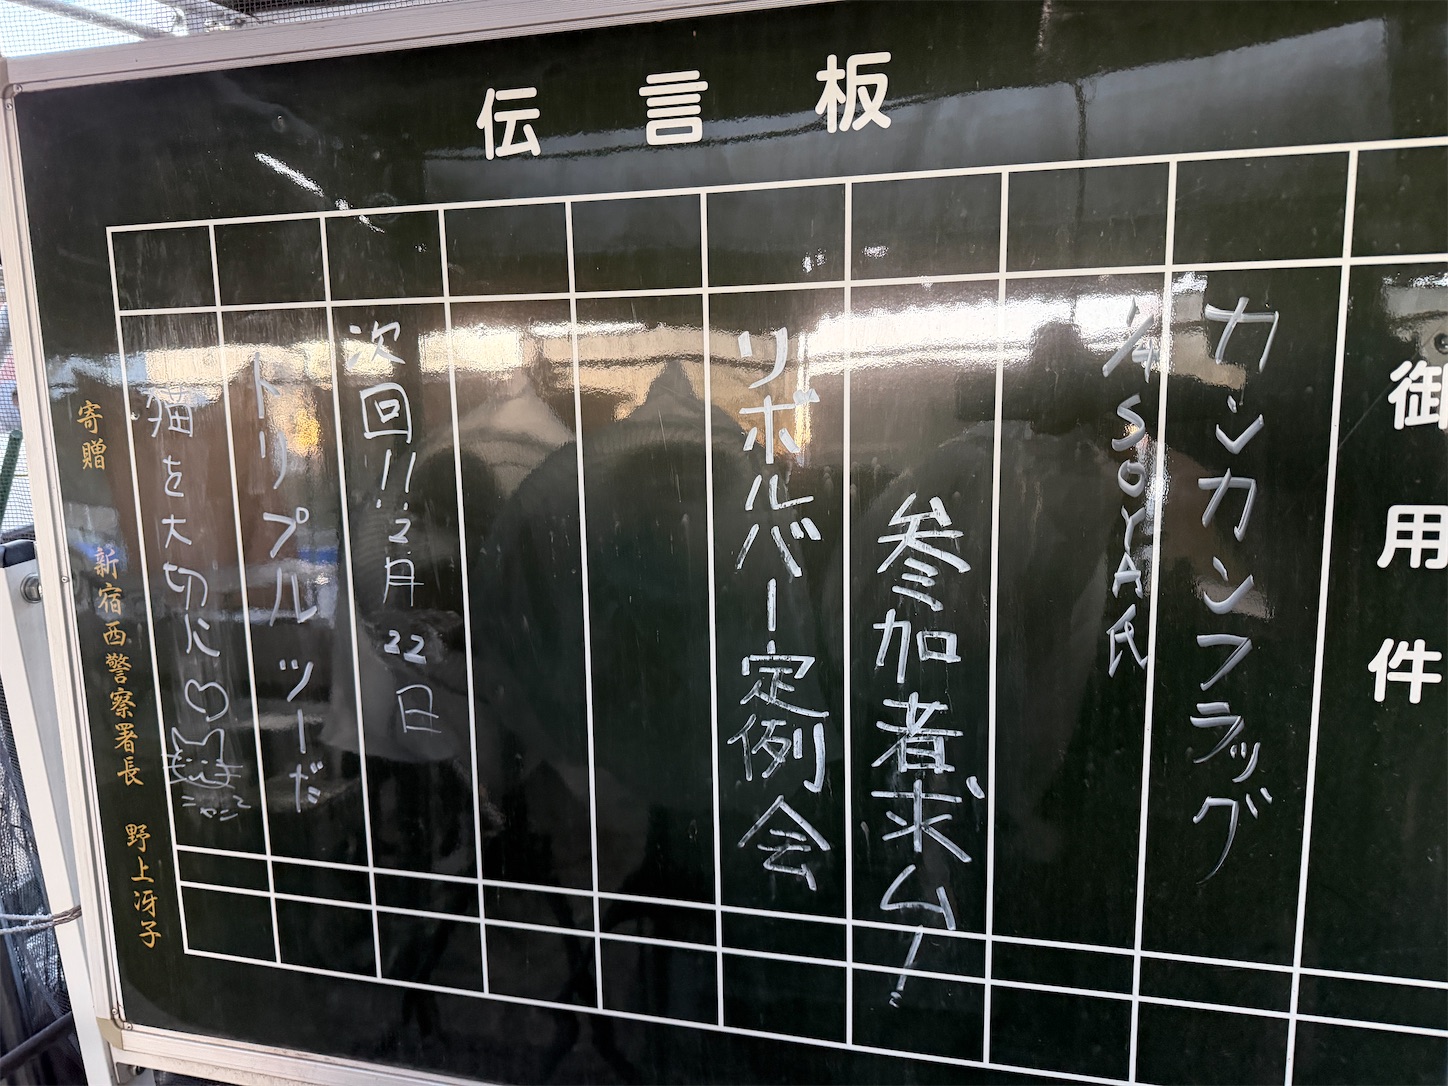 伝言板
御用件
カンカンフラッグ
1/4 SOYA氏
参加者求ム!
リボルバー定例会
次回!!2月22日
トリプルツーだ
猫を大切に
にゃこ
寄贈 新宿西警察署長 野上冴子